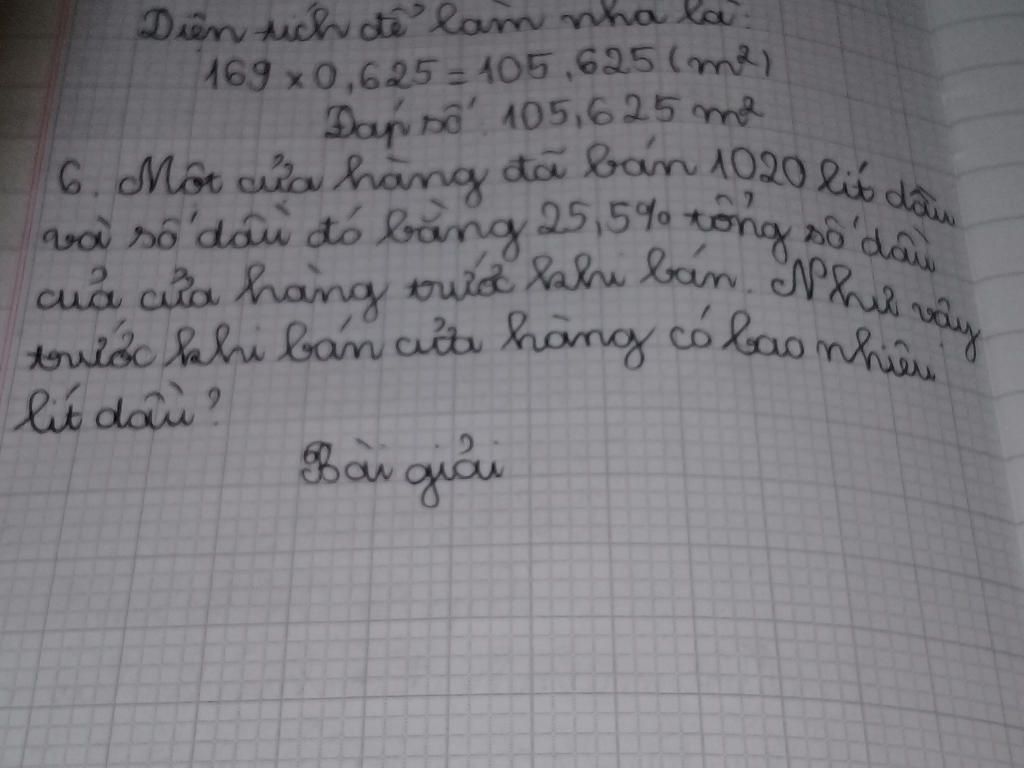 Diện tích để làm nhà là:
169 x 0,625 = 105,625 (m²)
Đáp số: 105,625 m²
6. Một cửa hàng đã bán 1020 lít dầu
và số dầu đó bằng 25,5% tổng số dầu
của cửa hàng trước khi bán. Như vậy
trước khi bán cửa hàng có bao nhiêu
lít dầu?
Bài giải